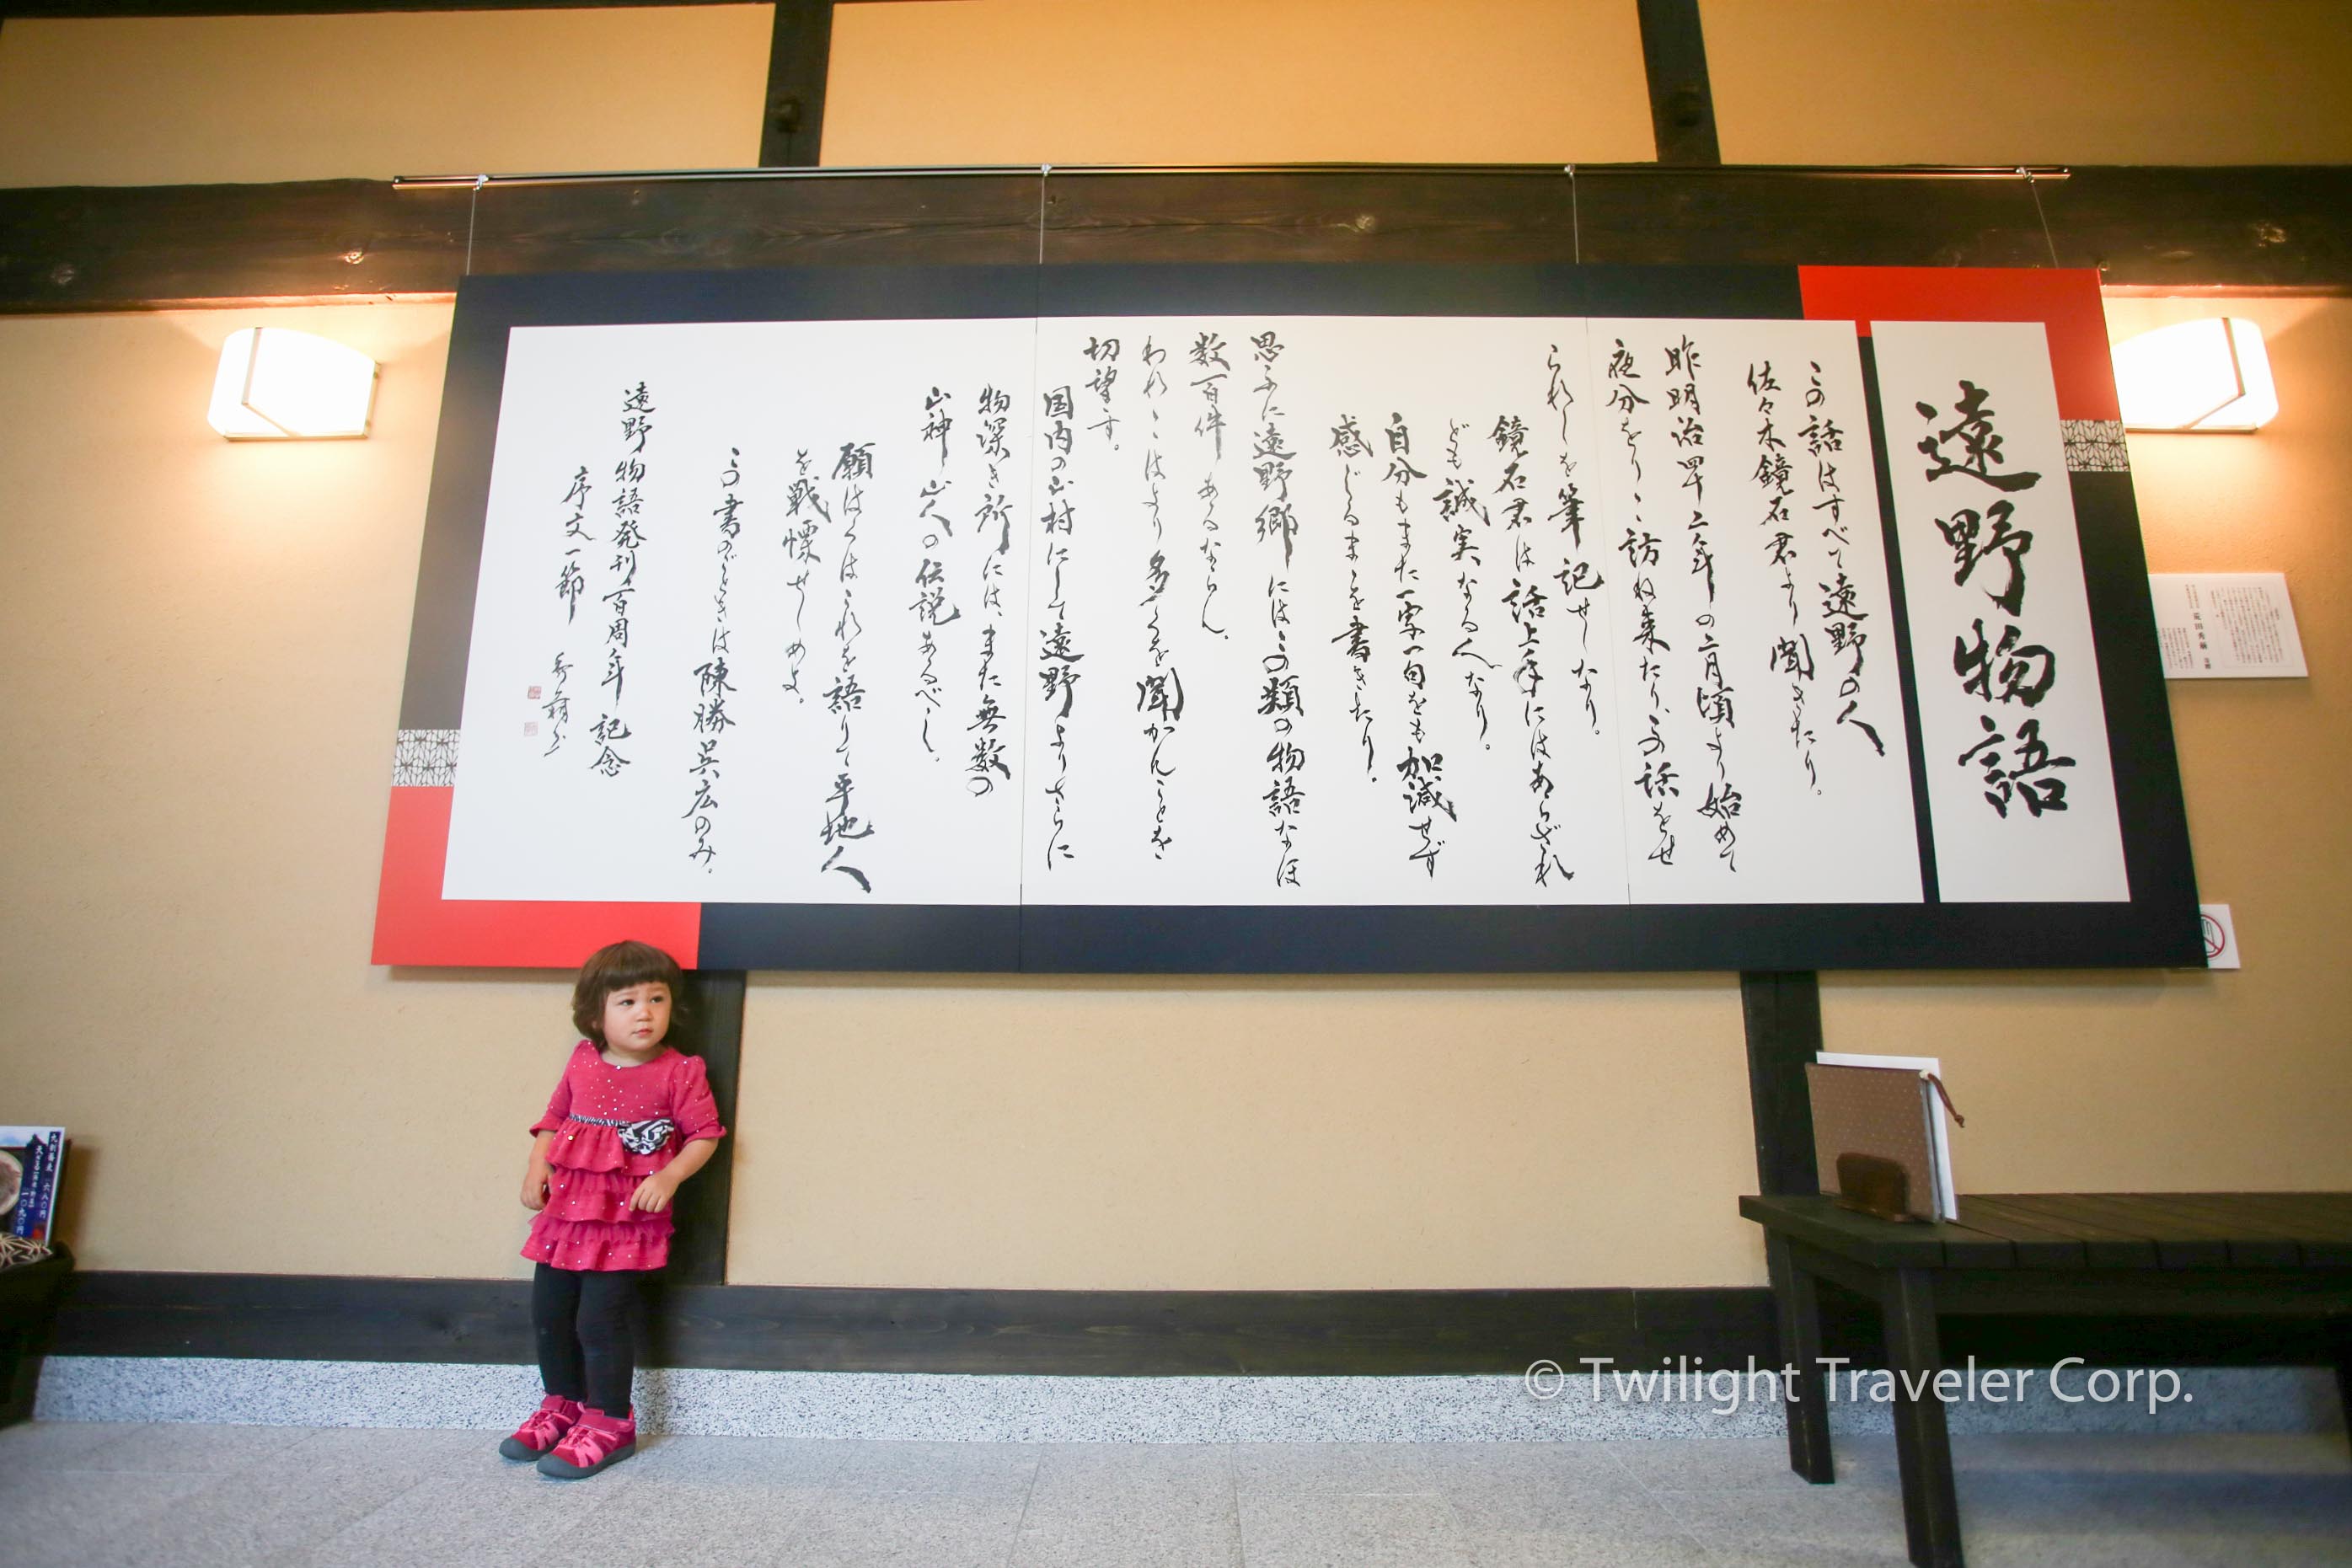 遠野物語
この話はすべて遠野の人
佐々木鏡石君より聞きたり。
昨明治四十二年の二月頃より始めて
夜分をりをり訪ね来たり、この話をせ
られしを筆記せしなり。
鏡石君は話上手にはあらざれ
ども誠実なる人なり。
自分もまた一字一句をも加減せず
感じたるままを書きたり。
思ふに遠野郷にはこの類の物語なほ
数百件あるならん。
われわれはより多くを聞かんことを
切望す。
国内の山村にして遠野よりさらに
物深き所には、また無数の
山神山人の伝説あるべし。
願はくはこれを語りて平地人
を戦慄せしめよ。
この書のごときは陳勝呉広のみ。
遠野物語発刊百周年記念
序文一節
© Twilight Traveler Corp.